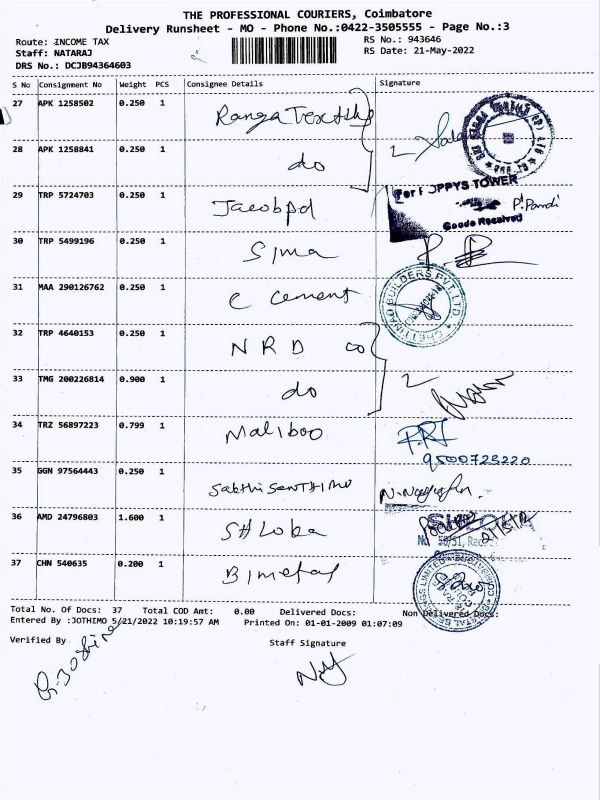 THE PROFESSIONAL COURIERS, Coimbatore
Delivery Runsheet - MO - Phone No.:0422-3505555 - Page No.:3
Route: INCOME TAX RS No.: 943646
Staff: NATARAJ RS Date: 21-May-2022
DRS No.: DCJB94364603
S No Consignment No Weight PCS Consignee Details Signature
27 APK 1258502 0.250 1 Ranga
28 APK 1258841 0.250 1 do 2
For POPPYS TOWER
29 TRP 5724703 0.250 1 P. Pandi
Goods Received
30 TRP 5499196 0.250 1 Sima
31 MAA 290126762 0.250 1 e cement CHETTINAD BUILDERS PVT.LTD
32 TRP 4640153 0.250 1 N R D co
33 TMG 200226814 0.900 1 do 2
34 TRZ 56897223 0.799 1 Maliboo
9500725220
35 GGN 97564443 0.250 1
36 AMD 24796803 1.600 1 St Loba
37 CHN 540635 0.200 1
Total No. Of Docs: 37 Total COD Amt: 0.00 Delivered Docs: Non Delivered Docs:
Entered By :JOTHIMO 5/21/2022 10:19:57 AM Printed On: 01-01-2009 01:07:09
Verified By Staff Signature